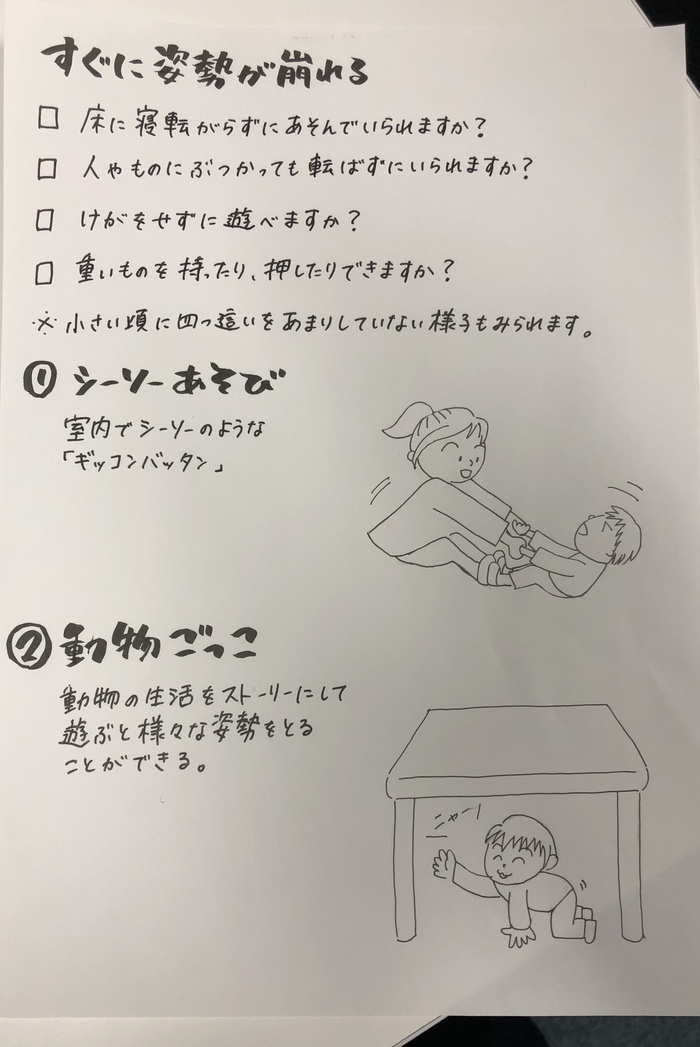 すぐに姿勢が崩れる
□ 床に寝転がらずにあそんでいられますか？
□ 人やものにぶつかっても転ばずにいられますか？
□ けがをせずに遊べますか？
□ 重いものを持ったり、押したりできますか？
※小さい頃に四つ這いをあまりしていない様子もみられます。
① シーソーあそび
室内でシーソーのような
「ギッコンバッタン」
② 動物ごっこ
動物の生活をストーリーにして
遊ぶと様々な姿勢をとる
ことができる。
ニャー